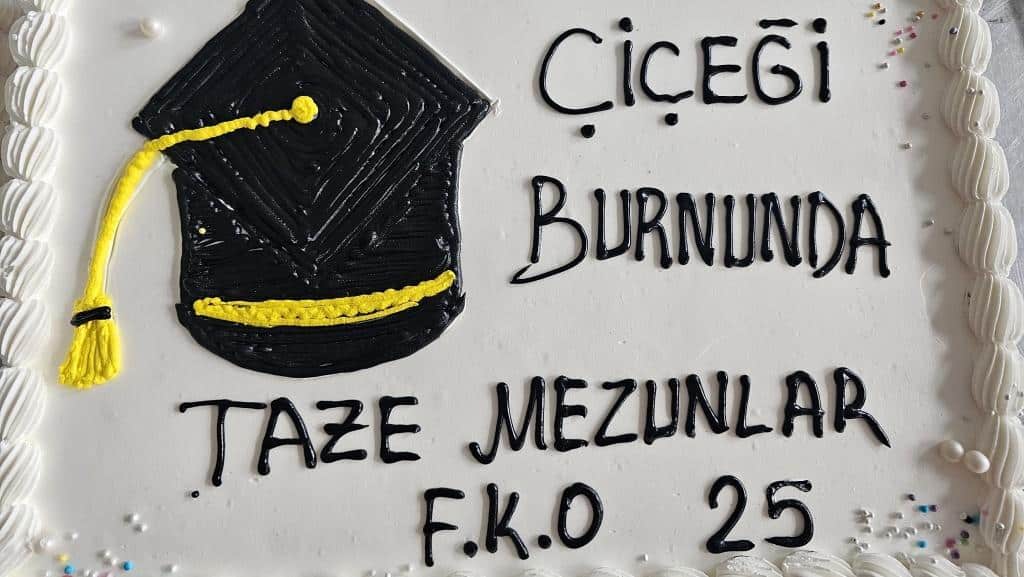 ÇİÇEĞİ
BURNUNDA
TAZE MEZUNLAR
F.K.O 25